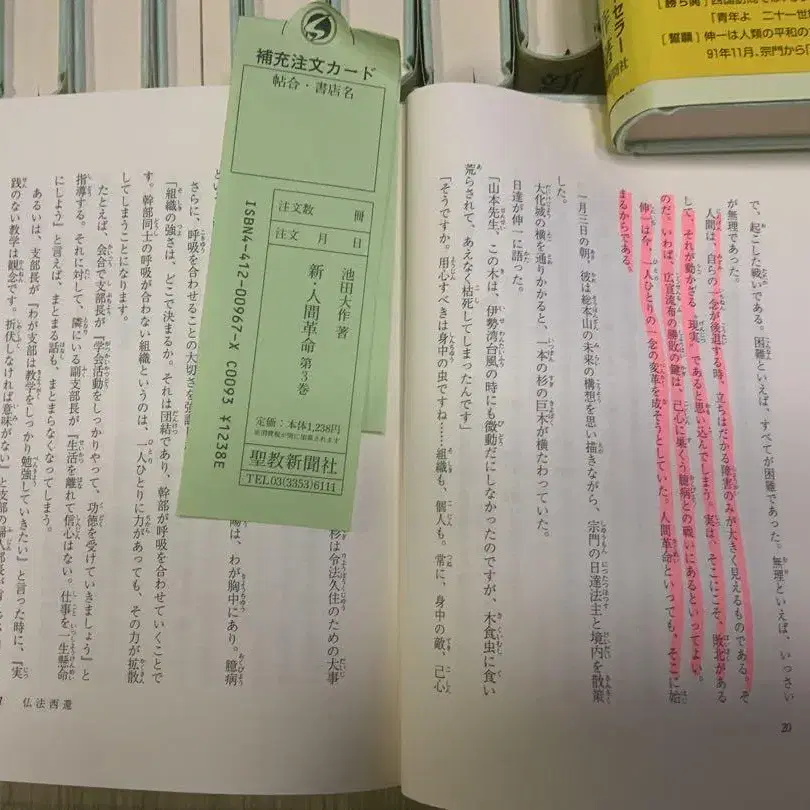 [勝ち鬨]
「青年よ 二十一世
[誓願] 伸一は人類の平和の
91年11月、宗門から「
セラー
聞社
で、起こした戦いである。困難といえば、すべてが困難であった。無理といえば、いっさい
が無理であった。
人間は、自らの一念が後退する時、立ちはだかる障害のみが大きく見えるものである。そ
して、それが動かざる〝現実〟であると思い込んでしまう。実は、そこにこそ、敗北がある
のだ。いわば、広宣流布の勝敗の鍵は、己心に巣くう臆病との戦いにあるといってよい。
伸一は今、一人ひとりの一念の変革を成そうとしていた。人間革命といっても、そこに始
まるからである。
一月三日の朝、彼は総本山の未来の構想を思い描きながら、宗門の日達法主と境内を散策
した。
大化城の横を通りかかると、一本の杉の巨木が横たわっていた。
日達が伸一に語った。
「山本先生、この木は、伊勢湾台風の時にも微動だにしなかったのですが、木食虫に食い
荒らされて、あえなく枯死してしまったんです」
「そうですか。用心すべきは身中の虫ですね……組織も、個人も。常に、身中の敵、己心
20
補充注文カード
帖合・書店名
注文数 冊
注文 月 日
池田大作 著
新・人間革命 第3巻
定価:本体1,238円
聖教新聞社
TEL03(3353)6111
ISBN4-412-00967-X C0093 ¥1238E
杉は令法久住のための大事
陽は、わが胸中にあり。臆病
さらに、呼吸を合わせることの大切さを強調
「組織の強さは、どこで決まるか。それは団結であり、幹部が呼吸を合わせていくことで
す。幹部同士の呼吸が合わない組織というのは、一人ひとりに力があっても、その力が拡散
してしまうことになります。
たとえば、会合で支部長が『学会活動をしっかりやって、功徳を受けていきましょう』と
指導する。それに対して、隣にいる副支部長が『生活を離れて信心はない。仕事を一生懸命
にしよう』と言えば、まとまる話も、まとまらなくなってしまう。
あるいは、支部長が『わが支部は教学をしっかり勉強していきたい』と言った時に、『実
践のない教学は観念です。折伏しなければ意味がない』と支部の婦人部長が
仏法西還